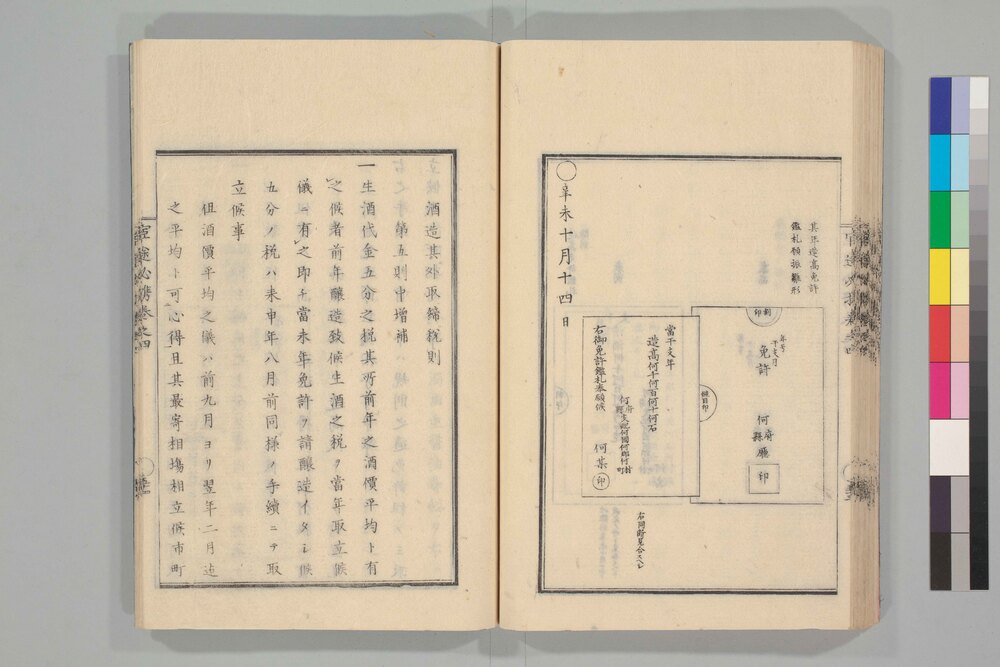 其年造高免許
鑑札願振雛形
年号
干支月
免許
何府縣廳
印
割印
當干支年
造高何千何百何十何石
府縣支配何國何郡何村町
何
右御免許鑑札奉願候
何某 印
右同断見合スベシ
辛未十月十四日
酒造其外取締税則
第五則中増補
一生酒代金五分之税其所前年之酒價平均ト有
之候者前年醸造致候生酒之税ヲ當年取立候
儀ニ有之即チ當未年免許ヲ請醸造イタシ候
五分ノ税ハ来申年八月前同様ノ手續ニテ取
立候事
但酒價平均之儀ハ前九月ヨリ翌年二月迄
之平均ト可心得且其最寄相塲相立候市町